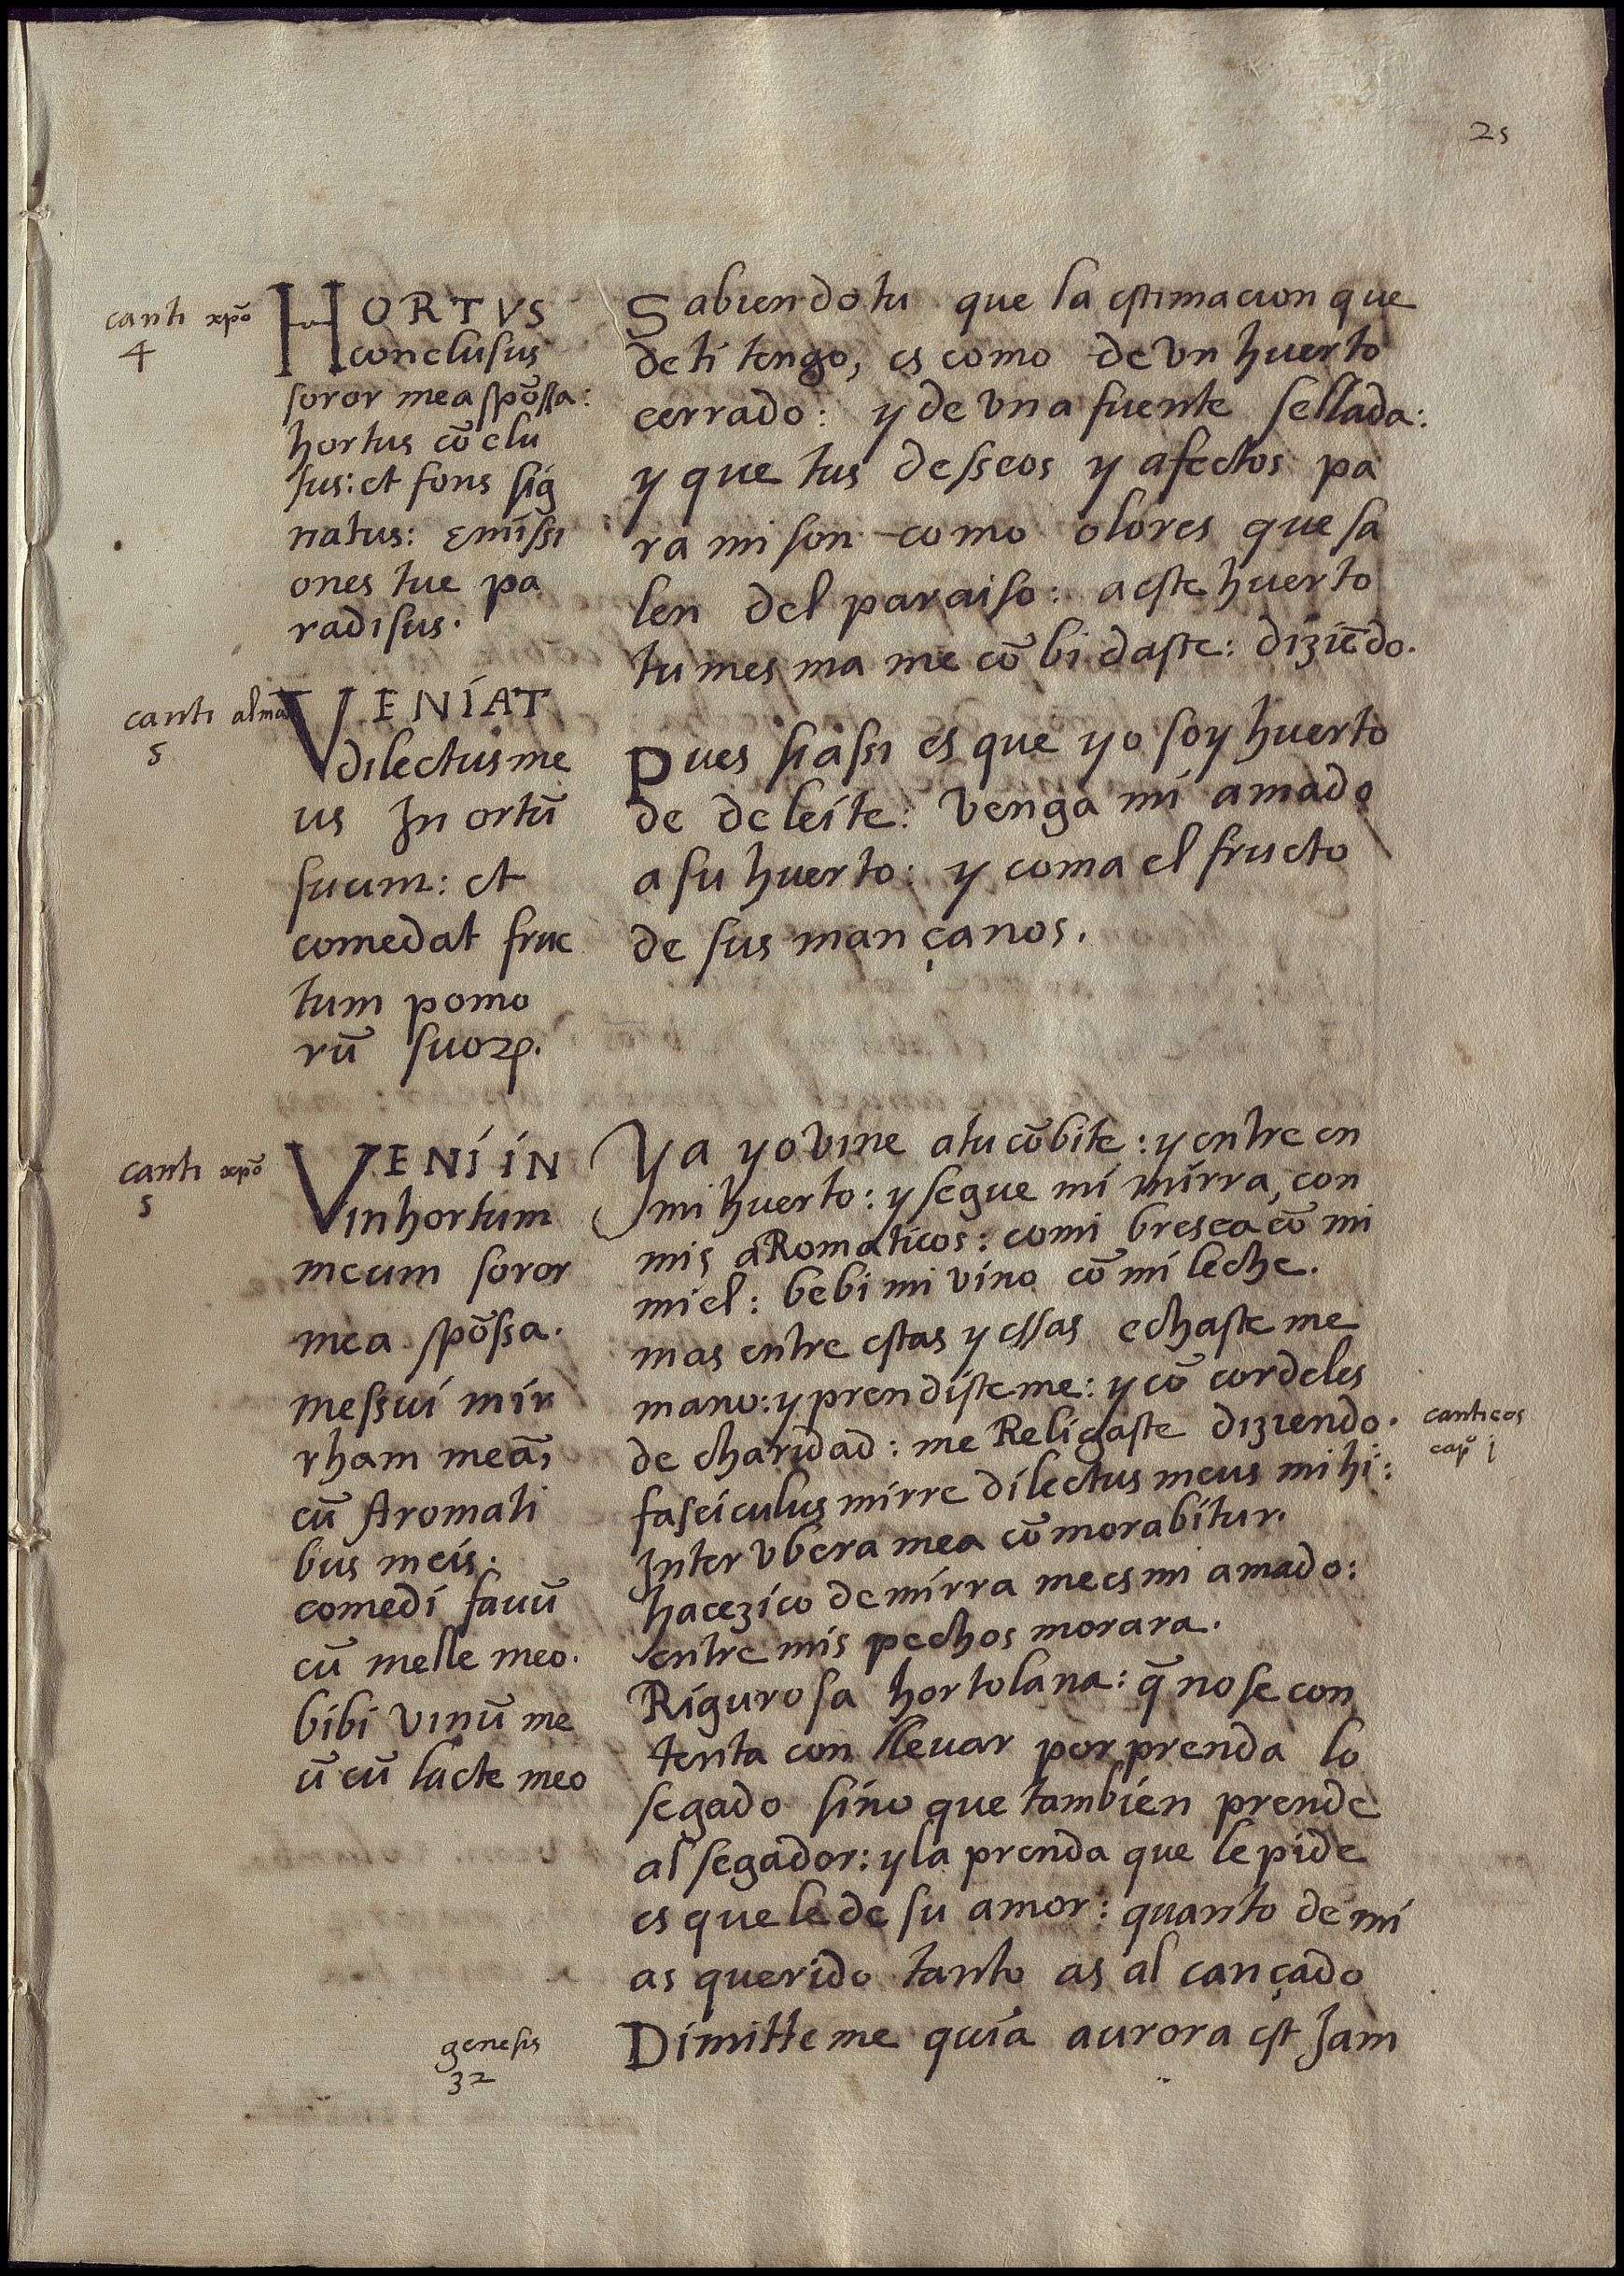 25
canti xpõ
4
HORTVS
conclusus
soror mea spõssa:
hortus cõclu
sus: et fons sig
natus: Emissi
ones tue pa
radisus.
Sabiendo tu que la estimacion que
de ti tengo, es como de vn huerto
cerrado: y de vna fuente sellada:
y que tus desseos y afectos pa
ra mi son como olores que sa
len del paraiso: a este huerto
tu mesma me cõbidaste: diziẽdo.
canti alma
5
VENIAT
dilectus me
us In ortũ
suum: et
comedat fruc
tum pomo
rũ suoꝝ.
Pues si assi es que yo soy huerto
de deleite: venga mi amado
a su huerto: y coma el fructo
de sus mançanos.
canti xpõ
5
VENI IN
in hortum
meum soror
mea spõssa.
messui mir
rham meã,
cũ Aromati
bus meis.
comedi favũ
cũ melle meo.
bibi vinũ me
ũ cũ lacte meo
Ya yo vine a tu cõbite: y entre en
mi huerto: y segue mi mirra, con
mis aRomaticos: comi bresca cõ mi
miel: bebi mi vino cõ mi leche.
mas entre estas y essas echaste me
mano: y prendisteme: y cõ cordeles
de charidad: me Religaste diziendo.
canticos
capº j
fasciculus mirre dilectus meus mihi:
Inter vbera mea cõmorabitur.
hacezico de mirra me es mi amado:
entre mis pechos morara.
Rigurosa hortolana: q̃ no se con
tenta con llevar por prenda lo
segado sino que tambien prende
al segador: y la prenda que le pide
es que le de su amor: quanto de mi
as querido tanto as alcançado
genesis
32
Dimitte me quia aurora est Jam